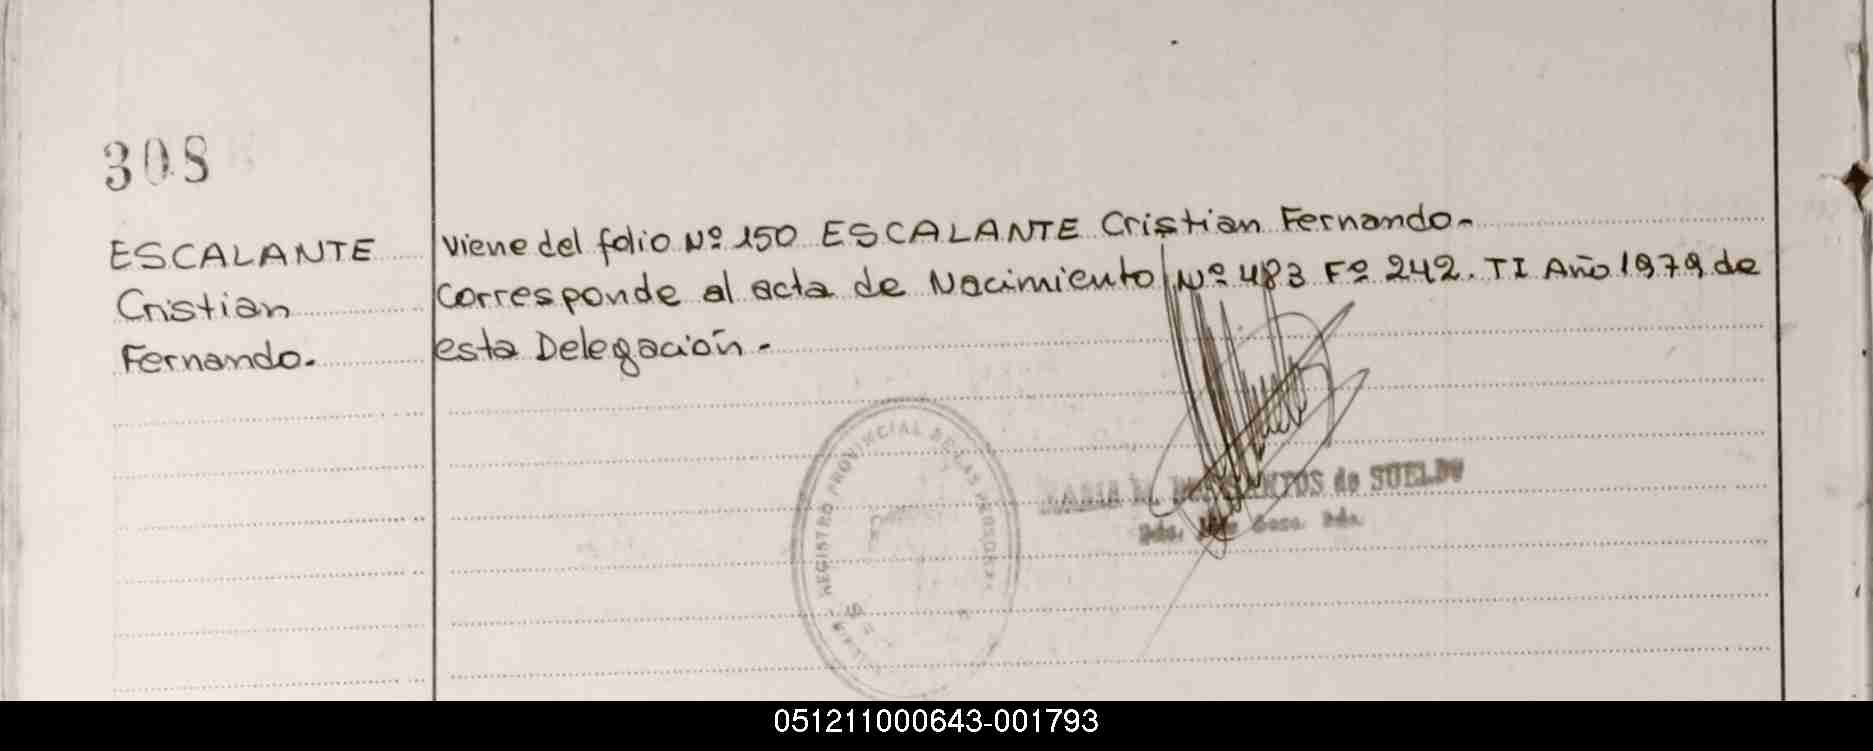 308
ESCALANTE
Cristian
Fernando.
Viene del folio Nº 150 ESCALANTE Cristian Fernando.-
Corresponde al acta de Nacimiento Nº 483 Fº 242. TI Año 1979 de
esta Delegación.-
REGISTRO PROVINCIAL DE LAS PERSONAS
MARIA de SUELDO
051211000643-001793